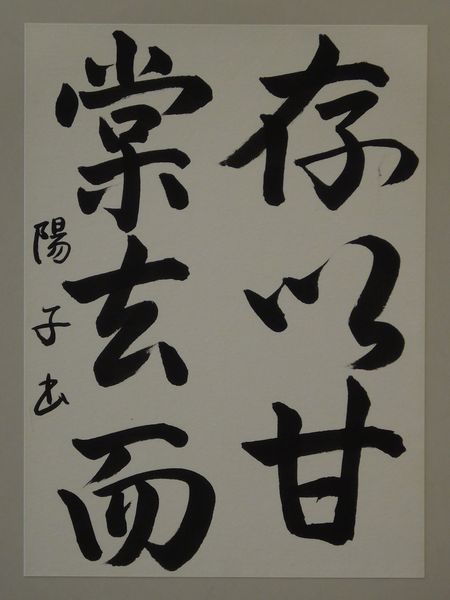 存以甘
棠去而
陽子書